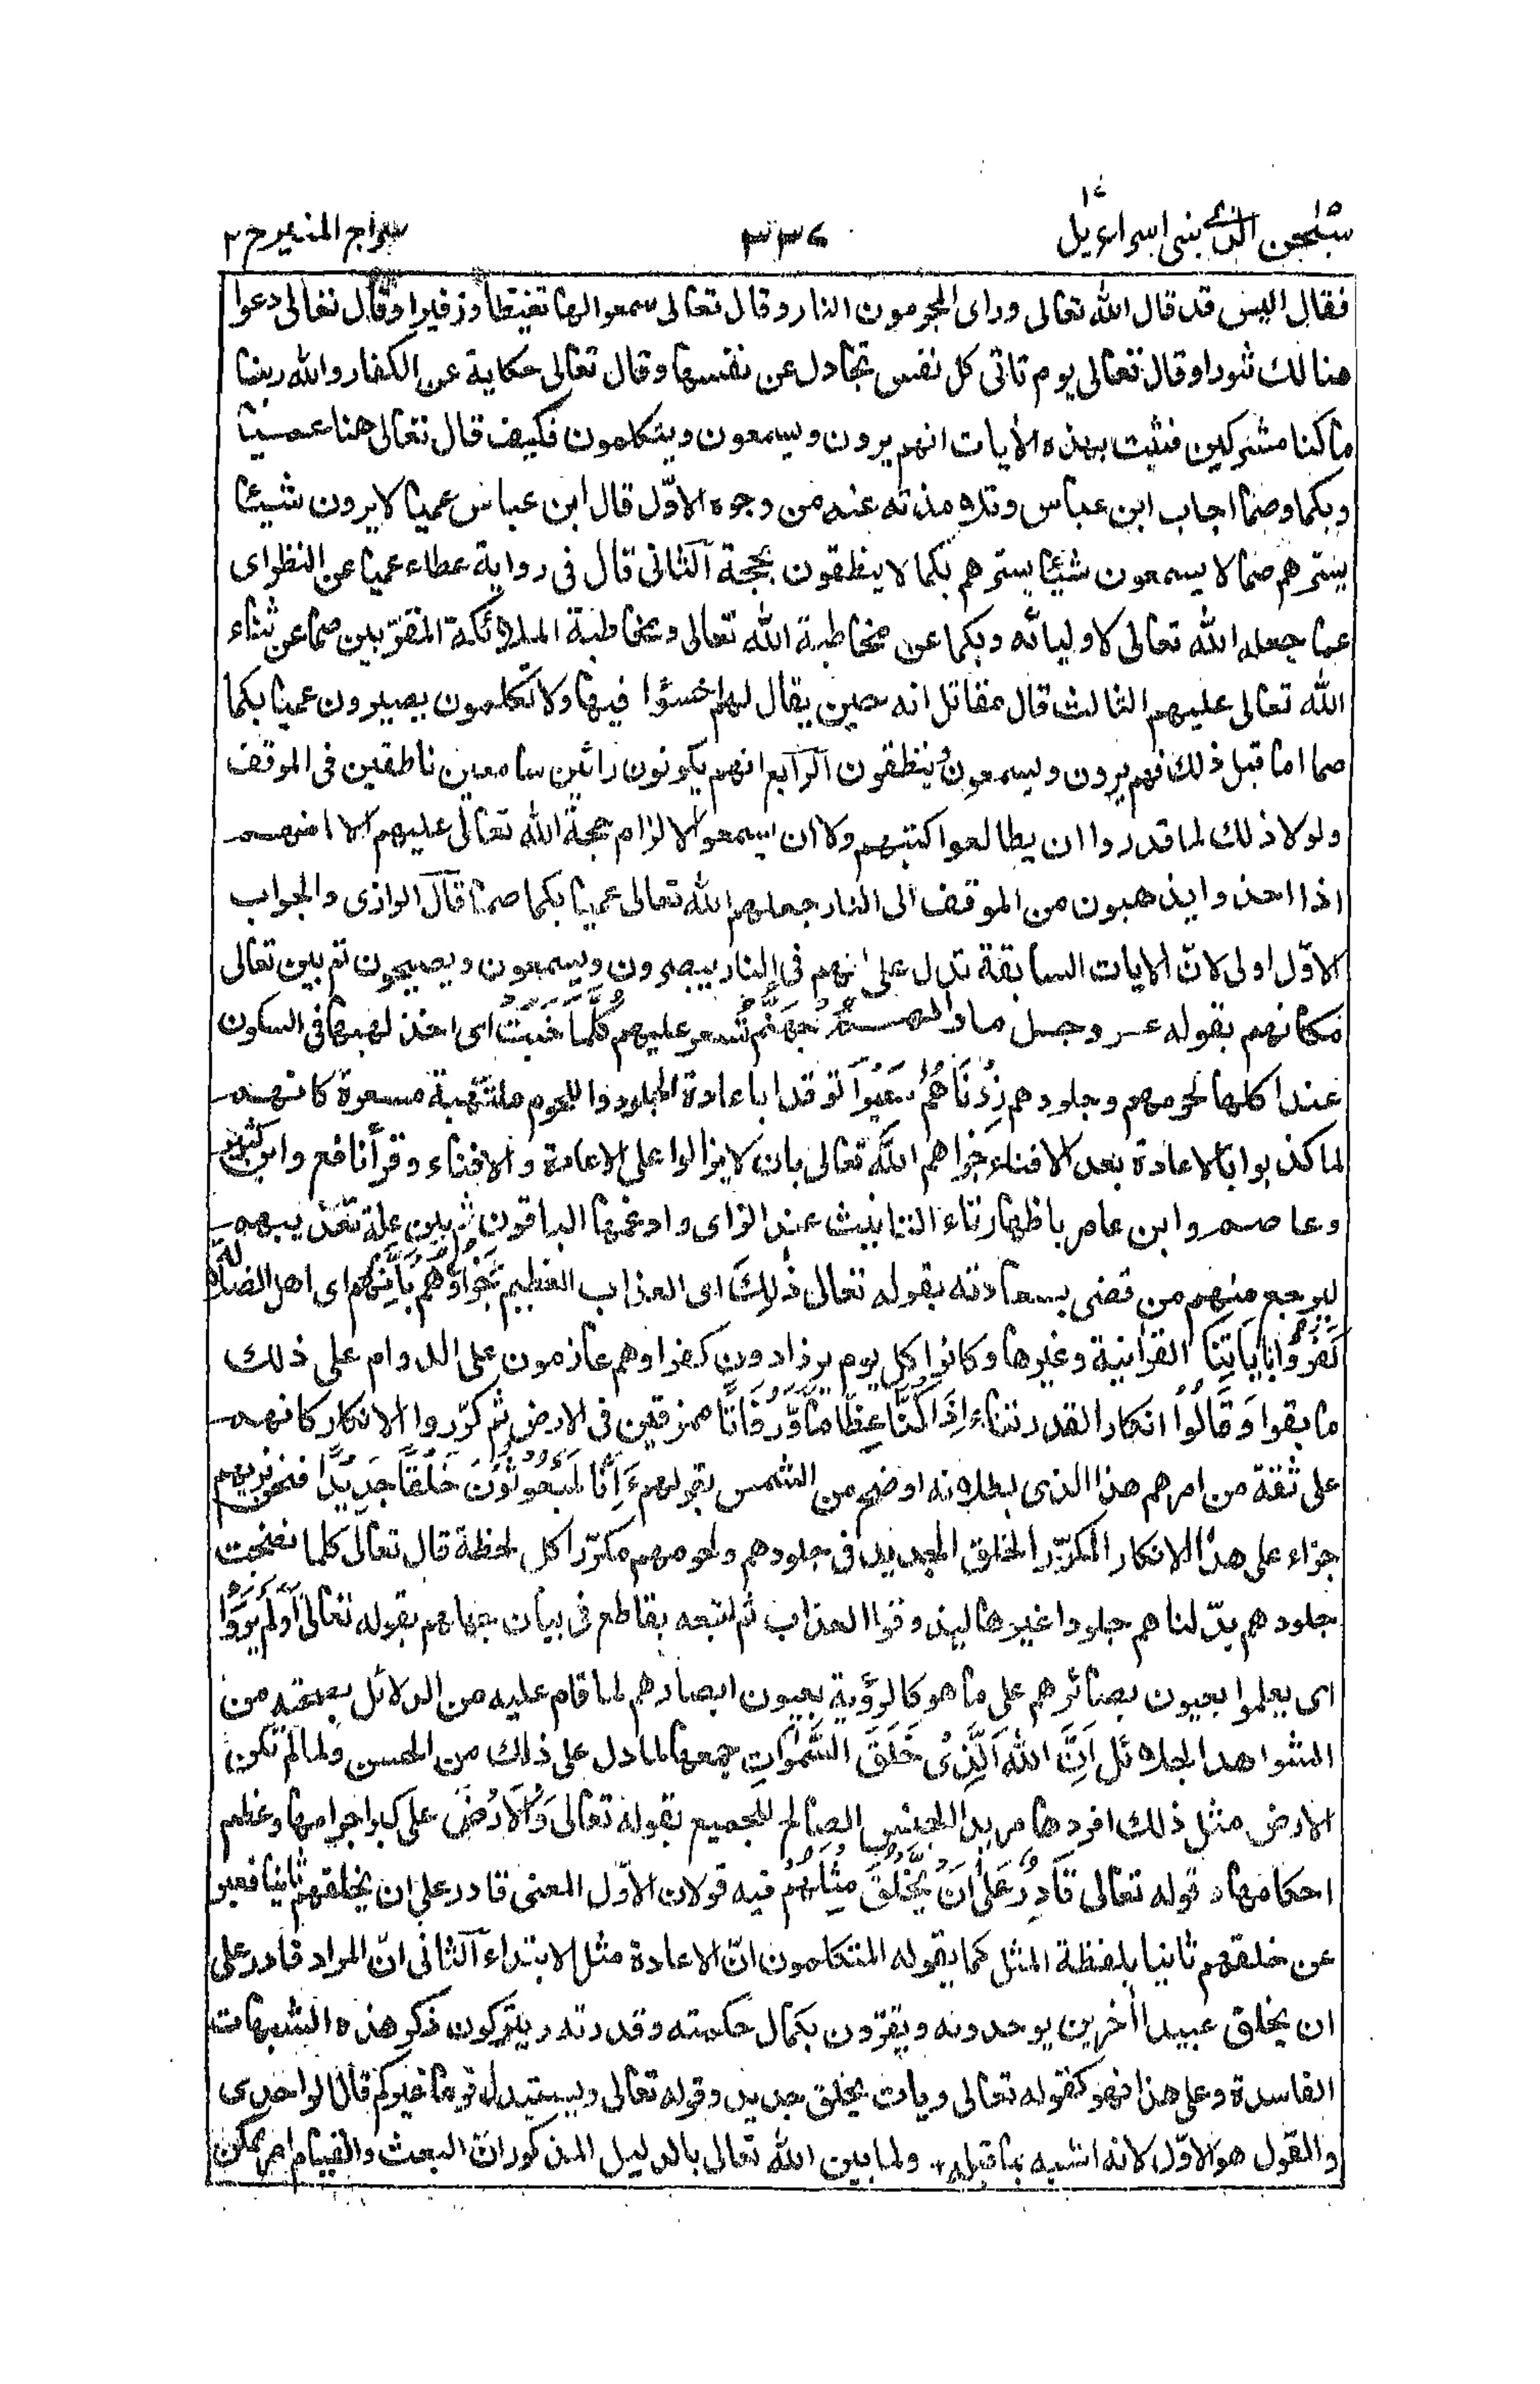 سبحٰن الذى ١٥ بنى اسراءيل ١٧
٣٣٦
سراج المنير ج ٢
فقال اليس قد قال الله تعالى وراى المجرمون النار وقال تعالى سمعوا لها تغيظا وزفيرا وقال تعالى دعوا
هنالك ثبورا وقال تعالى يوم تاتى كل نفس تجادل عن نفسها وقال تعالى حكاية عن الكفار والله ربنا
ما كنا مشركين فثبت بهذه الأيات انهم يرون ويسمعون ويتكلمون فكيف قال تعالى هنا عميا
وبكما وصما اجاب ابن عباس وتلامذته عنه من وجوه الاوّل قال ابن عباس عميا لا يرون شيئا
يسرّهم صما لا يسمعون شيئا يسرهم بكما لا ينطقون بحجة الثانى قال فى رواية عطاء عميا عن النظر اى
عما جعله الله تعالى لاوليائه وبكما عن مخاطبة الله تعالى ومخاطبة الملائكة المقرّبين صما عن ثناء
الله تعالى عليهم الثالث قال مقاتل انه حين يقال لهم اخسؤا فيها ولا تكلمون يصيرون عميا بكما
صما اما قبل ذلك فهم يرون ويسمعون وينطقون الرابع انهم يكونون رائين سامعين ناطقين فى الموقف
ولولا ذلك لما قدروا ان يطالعوا كتبهم ولا ان يسمعوا الزام حجة الله تعالى عليهم الا انهم
اذا اخذوا يذهبون من الموقف الى النار جعلهم الله تعالى عميا بكما صما قال الرازى والجواب
الاوّل اولى لانّ الايات السابقة تدل على انهم فى النار يبصرون ويسمعون ويصيحون ثم بين تعالى
مكانهم بقوله عز وجل ماوٰلهم جَهَنَّمُ تسعر عليهم كُلَّمَا خَبَتْ اى اخذ لهبها فى السكون
عند اكلها لحومهم وجلودهم زِدْنَاهُمْ سَعِيْرًا توقدا باعادة الجلود واللحوم ملتهبة مسعرة كانهم
لما كذبوا بالاعادة بعد الافناء جزاهم الله تعالى بان لا يزالوا على الاعادة والافناء وقرأ نافع وابن كثير
وعاصم وابن عامر باظهار تاء التانيث عند الزاى وادغمها الباقون ثم بين علة تعذيبهم
ليرجع منهم من قضى بسعادته بقوله تعالى ذٰلِكَ اى العذاب العظيم جَزَاؤُهُمْ بِاَنَّهُمْ اى اهل الضلالة
كَفَرُوْا بِاٰيَاتِنَا القرآنية وغيرها وكانوا كل يوم يزدادون كفرا وهم عازمون على الدوام على ذلك
ما بقوا وَقَالُوْا انكار القدرتنا ءَاِذَا كُنَّا عِظَامًا وَّرُفَاتًا ممزقين فى الارض ثم كرّروا الانكار كانهم
على ثقة من امرهم هذا الذى بطلانه اوضح من الشمس بقولهم ءَاِنَّا لَمَبْعُوْثُوْنَ خَلْقًا جَدِيْدًا فنحن نريهم
جزاء على هذا الانكار المكرّر الخلق الجديد فى جلودهم ولحومهم مكرّرا كل لحظة قال تعالى كلما نضجت
جلودهم بدّلناهم جلودا غيرها ليذوقوا العذاب ثم اتبعه بقاطع فى بيان جهلهم بقوله تعالى اَوَلَمْ يَرَوْا
اى يعلموا بعيون بصائرهم على ما هو كالرؤية بعيون ابصارهم لما قام عليه من الدلائل بصحته من
الشواهد الجلائل اَنَّ اللهَ الَّذِىْ خَلَقَ السَّمٰوٰاتِ جمعها لما دل على ذلك من الحسن ولما لم تكن
الارض مثل ذلك افردها مريدا للجنس الصالح للجميع بقوله تعالى وَالْاَرْضَ على كبر اجرامها وعظم
احكامها و قوله تعالى قَادِرٌ عَلٰى اَنْ يَّخْلُقَ مِثْلَهُمْ فيه قولان الاوّل المعنى قادر على ان يخلقهم ثانيا فعبر
عن خلقهم ثانيا بلفظة المثل كما يقوله المتكلمون انّ الاعادة مثل الابتداء الثانى انّ المراد قادر على
ان يخلق عبيدا أخرين يوحدونه ويقرّون بكمال حكمته وقدرته ويتركون ذكر هذه الشبهات
الفاسدة وعلى هذا فهو كقوله تعالى ويات بخلق جديد وقوله تعالى ويستبدل قوما غيركم قال الواحدى
والقول هو الاوّل لانه اشبه بما قبله ولما بين الله تعالى بالدليل المذكور انّ البعث والقيام امر ممكن